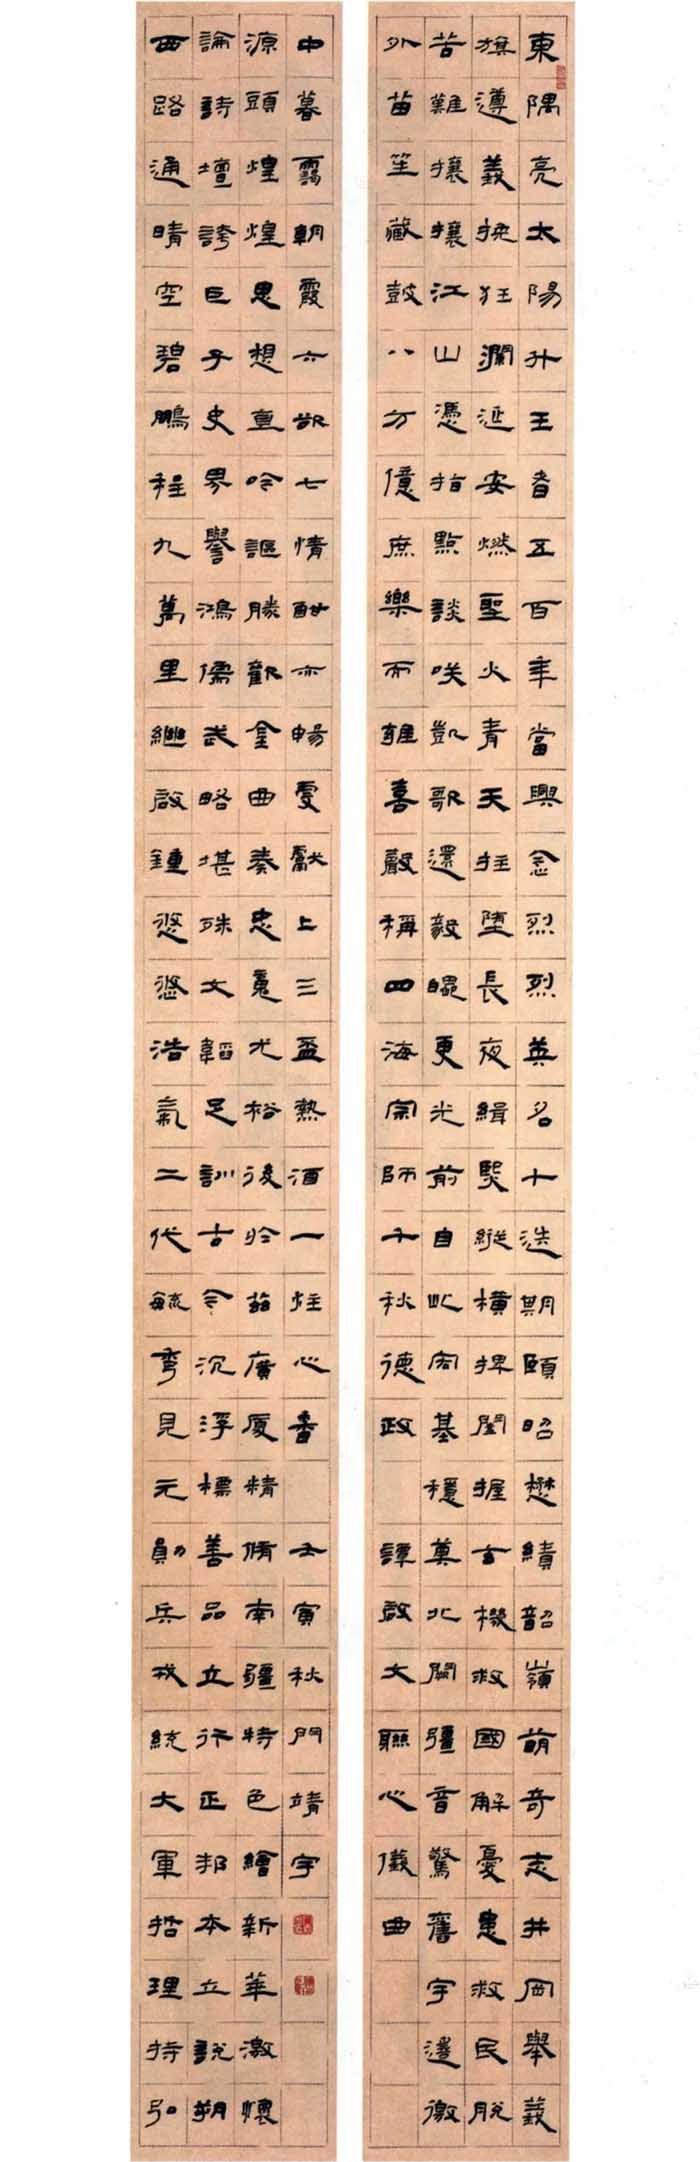 東隅亮太陽升王者五百年當興念烈烈英名十迭期頤昭懋績韶嶺萌奇志井岡舉義
旗遵義挽狂瀾延安燃聖火青天拄墮長夜緝熙縱橫捭闔握玄機救國解憂患救民脫
苦難攘攘江山憑指點談咲凱歌還毅魄更光前自此宏基穩奠北闕彊音驚舊宇邊徼
外苗笙藏鼓八方億庶樂而雅喜嚴稱四海宗師千秋德政
譚啟文聯心儀曲
西路通晴空碧鵬程九萬里繼啟鍾悠悠浩氣二代毓彎見元勛兵戎統大軍哲理持弘
論詩壇誇巨子史界譽鴻儒武略堪殊文韜足訓古今沉浮標善品立行正邦本立說朔
源頭煌煌思想直吟謳勝歡金曲奏忠魂尤裕後於茲廣廈精脩南疆特色繪新華激懷
中暮靄朝霞六欲七情酣亦暢虔獻上三盃熱酒一炷心香
壬寅秋門靖宇